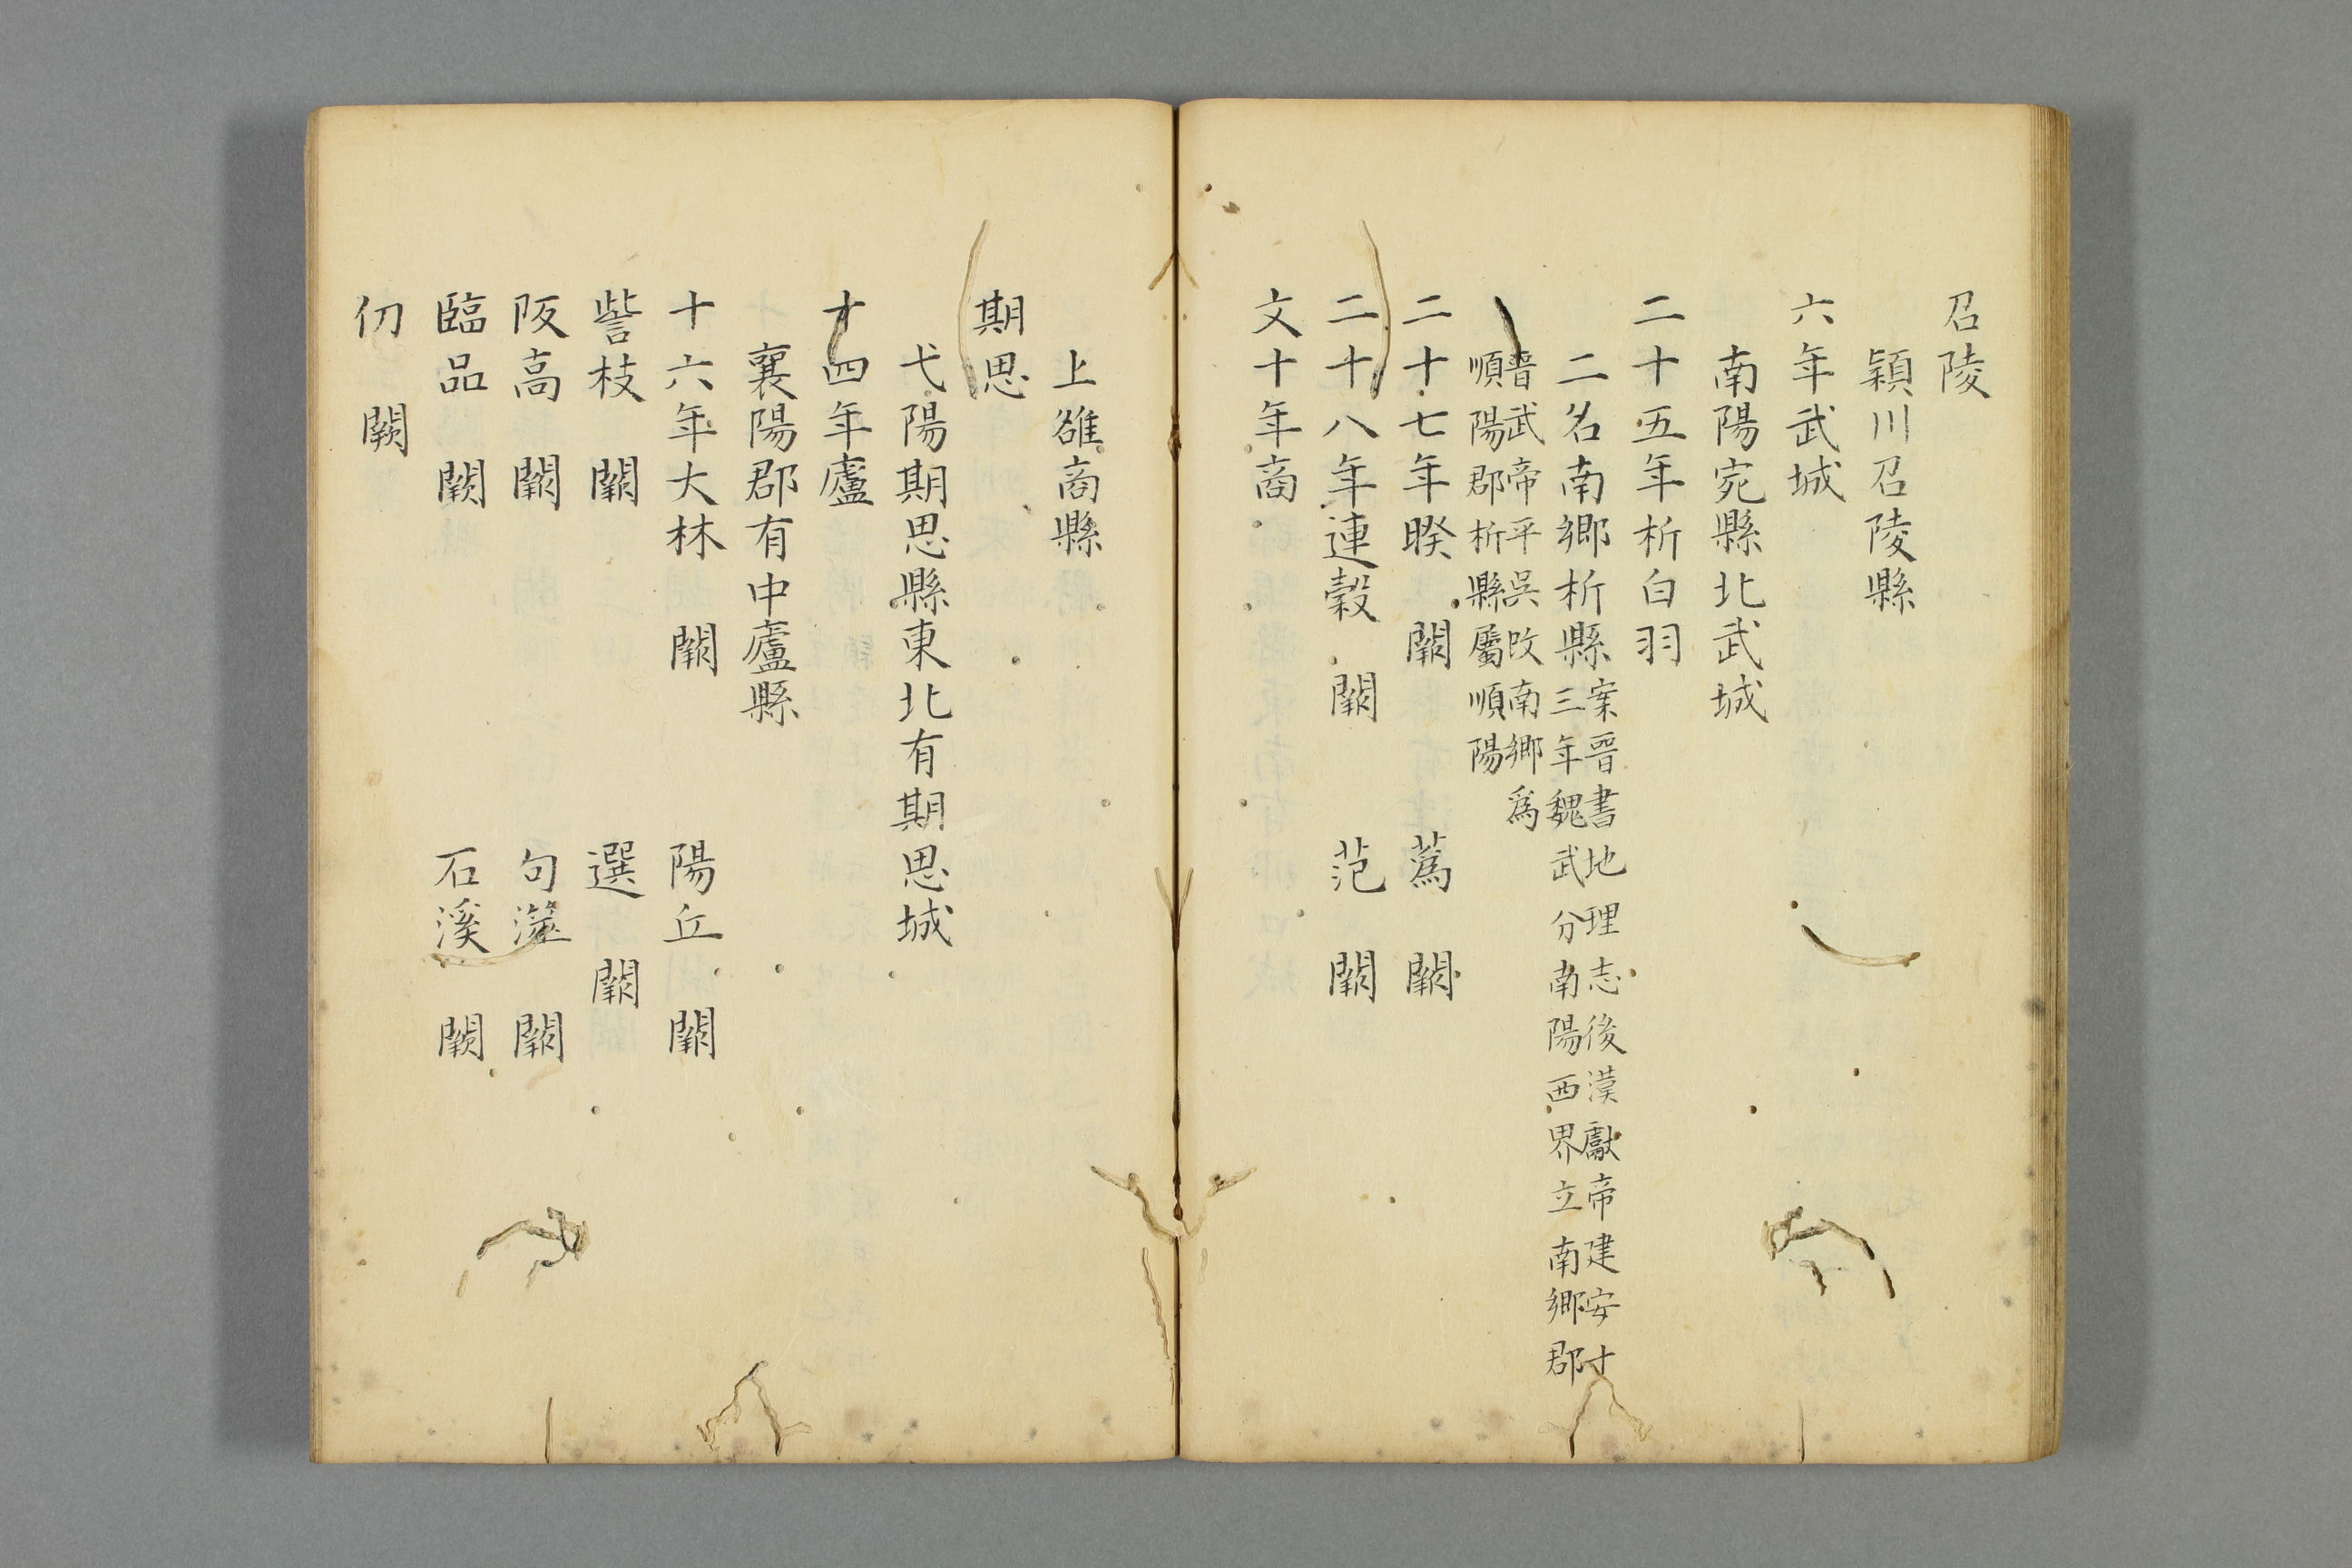 召陵
潁川召陵縣
六年武城
南陽宛縣北武城
二十五年析白羽
二名南鄉析縣案晉書地理志後漢獻帝建安十
三年魏武分南陽西界立南鄉郡
晉武帝平吳改南鄉爲
順陽郡析縣屬順陽
二十七年暌 闕 蒍 闕
二十八年連穀 闕 范 闕
文十年商
上雒商縣
期思
弋陽期思縣東北有期思城
十四年廬
襄陽郡有中廬縣
十六年大林 闕 陽丘 闕
訾枝 闕 選 闕
阪高 闕 句澨 闕
臨品 闕 石溪 闕
仞 闕